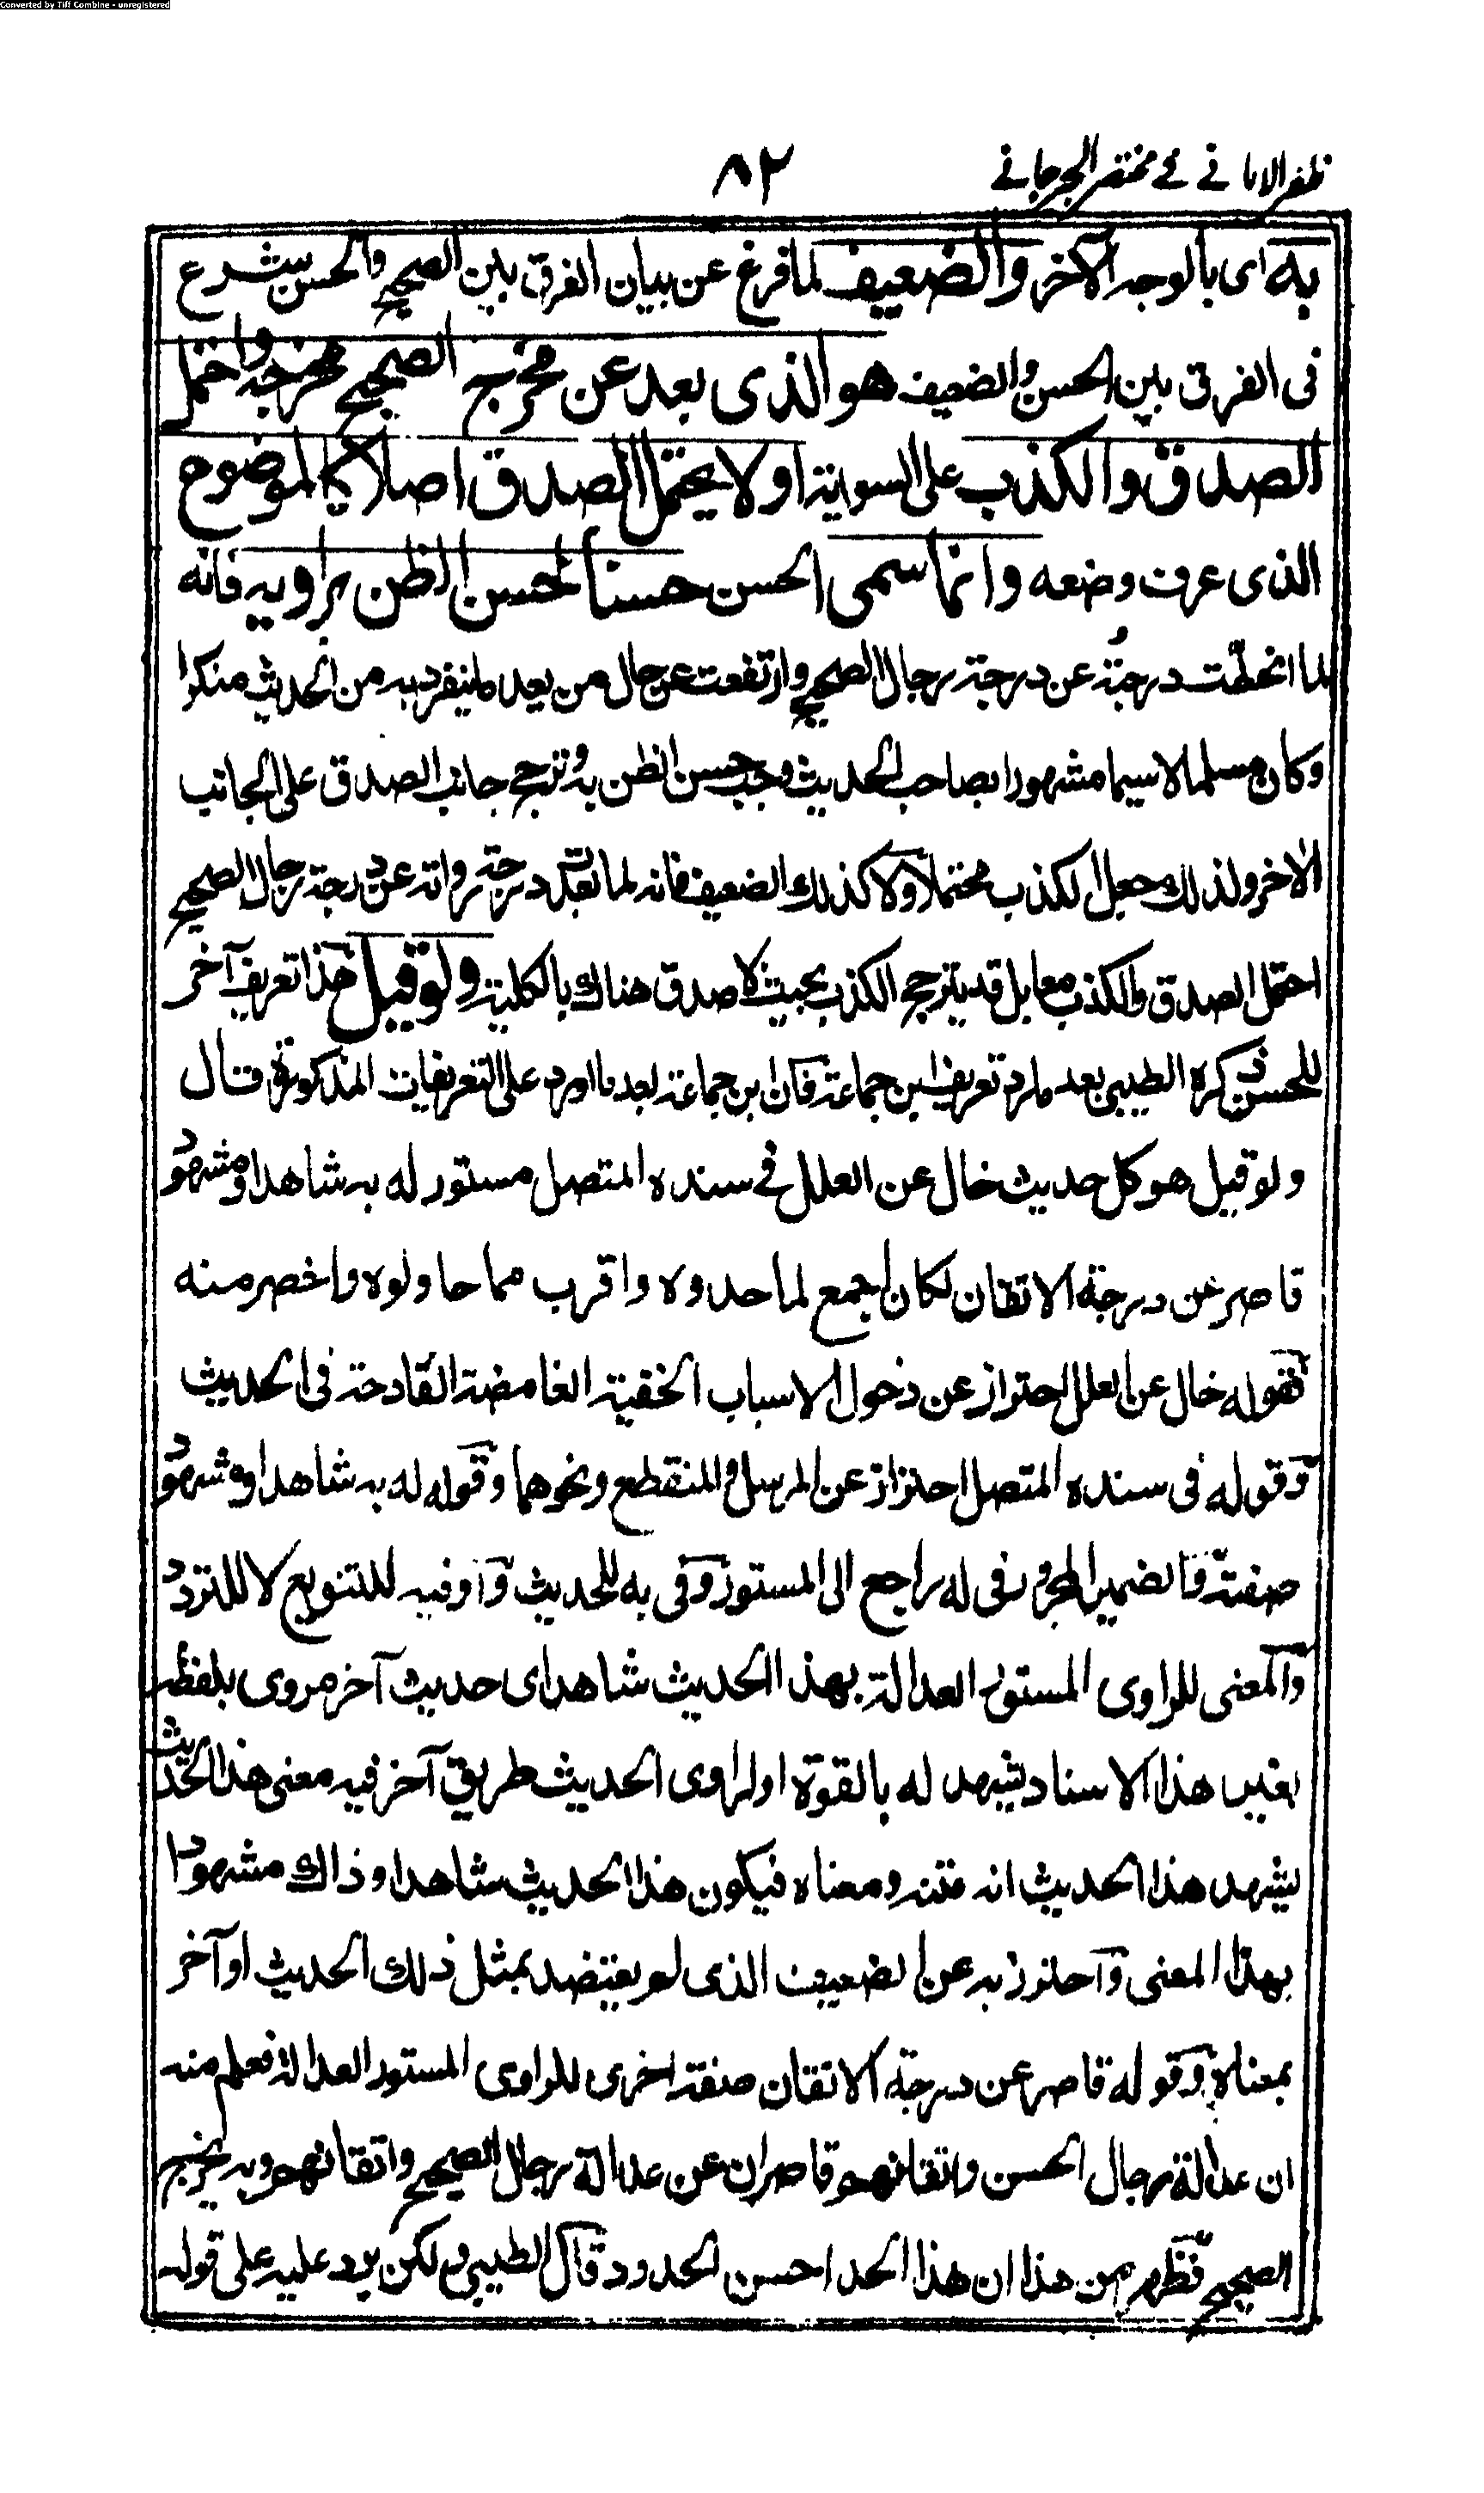 Converted by Tiff Combine - unregistered
ظفر الامانى فى مختصر الجرجانى ٨٢
به اى بالوجه الآخر والضعيف لما فرغ عن بيان الفرق بين الصحيح والحسن شرع
فى الفرق بين الحسن والضعيف هو الذى بعد عن مخرج الصحيح مخرجه واحتمل
الصدق والكذب على السوية او لا يحتمل الصدق اصلا كالموضوع
الذى عرف وضعه وانما سمى الحسن حسنا لحسن الظن براويه فانه
لما انحطت درجته عن درجة رجال الصحيح وارتفعت عن حال من يعد ما ينفرد به من الحديث منكرا
وكان مسلما لا سيما مشهورا بصاحب الحديث وجب حسن الظن به وترجح جانب الصدق على الجانب
الاخر ولذلك جعل الكذب محتملا ولا كذلك الضعيف فانه لما بعد درجة رواته عن درجة رجال الصحيح
احتمل الصدق والكذب معا بل قد يترجح الكذب بحيث لا صدق هناك بالكلية ولو قيل هذا تعريف آخر
للحسن ذكره الطيبى بعد ما رد تعريف ابن جماعة فان ابن جماعة بعد ما اورد على التعريفات المذكورة قال
ولو قيل هو كل حديث خال عن العلل فى سنده المتصل مستور له به شاهد او مشهود
قاصر عن درجة الاتقان لكان اجمع لما حدوه واقرب مما حاولوه واخصر منه
فقوله خال عن العلل احتراز عن دخول الاسباب الخفية الغامضة القادحة فى الحديث
وقوله فى سنده المتصل احتراز عن المرسل والمنقطع ونحوهما وقوله له به شاهد او مشهود
صفته فالضمير المجرور فى له راجع الى المستور وفى به للحديث واو فيه للتنويع لا للتردد
والمعنى للراوى المستور العدالة بهذا الحديث شاهد اى حديث آخر مروى بلفظه
بغير هذا الاسناد يشهد له بالقوة او لراوى الحديث طريق آخر فيه معنى هذا الحديث
يشهد هذا الحديث انه متنه ومعناه فيكون هذا الحديث شاهدا وذاك مشهودا
بهذا المعنى واحترز به عن الضعيف الذى لم يعتضد بمثل ذلك الحديث او آخر
بمعناه وقوله قاصر عن درجة الاتقان صفة اخرى للراوى المستور العدالة فعلم منه
ان عدالة رجال الحسن واتقانهم قاصران عن عدالة رجال الصحيح واتقانهم وبه يخرج
الصحيح فظهر من هذا ان هذا الحد احسن الحدود قال الطيبى ولكن يرد عليه على قوله